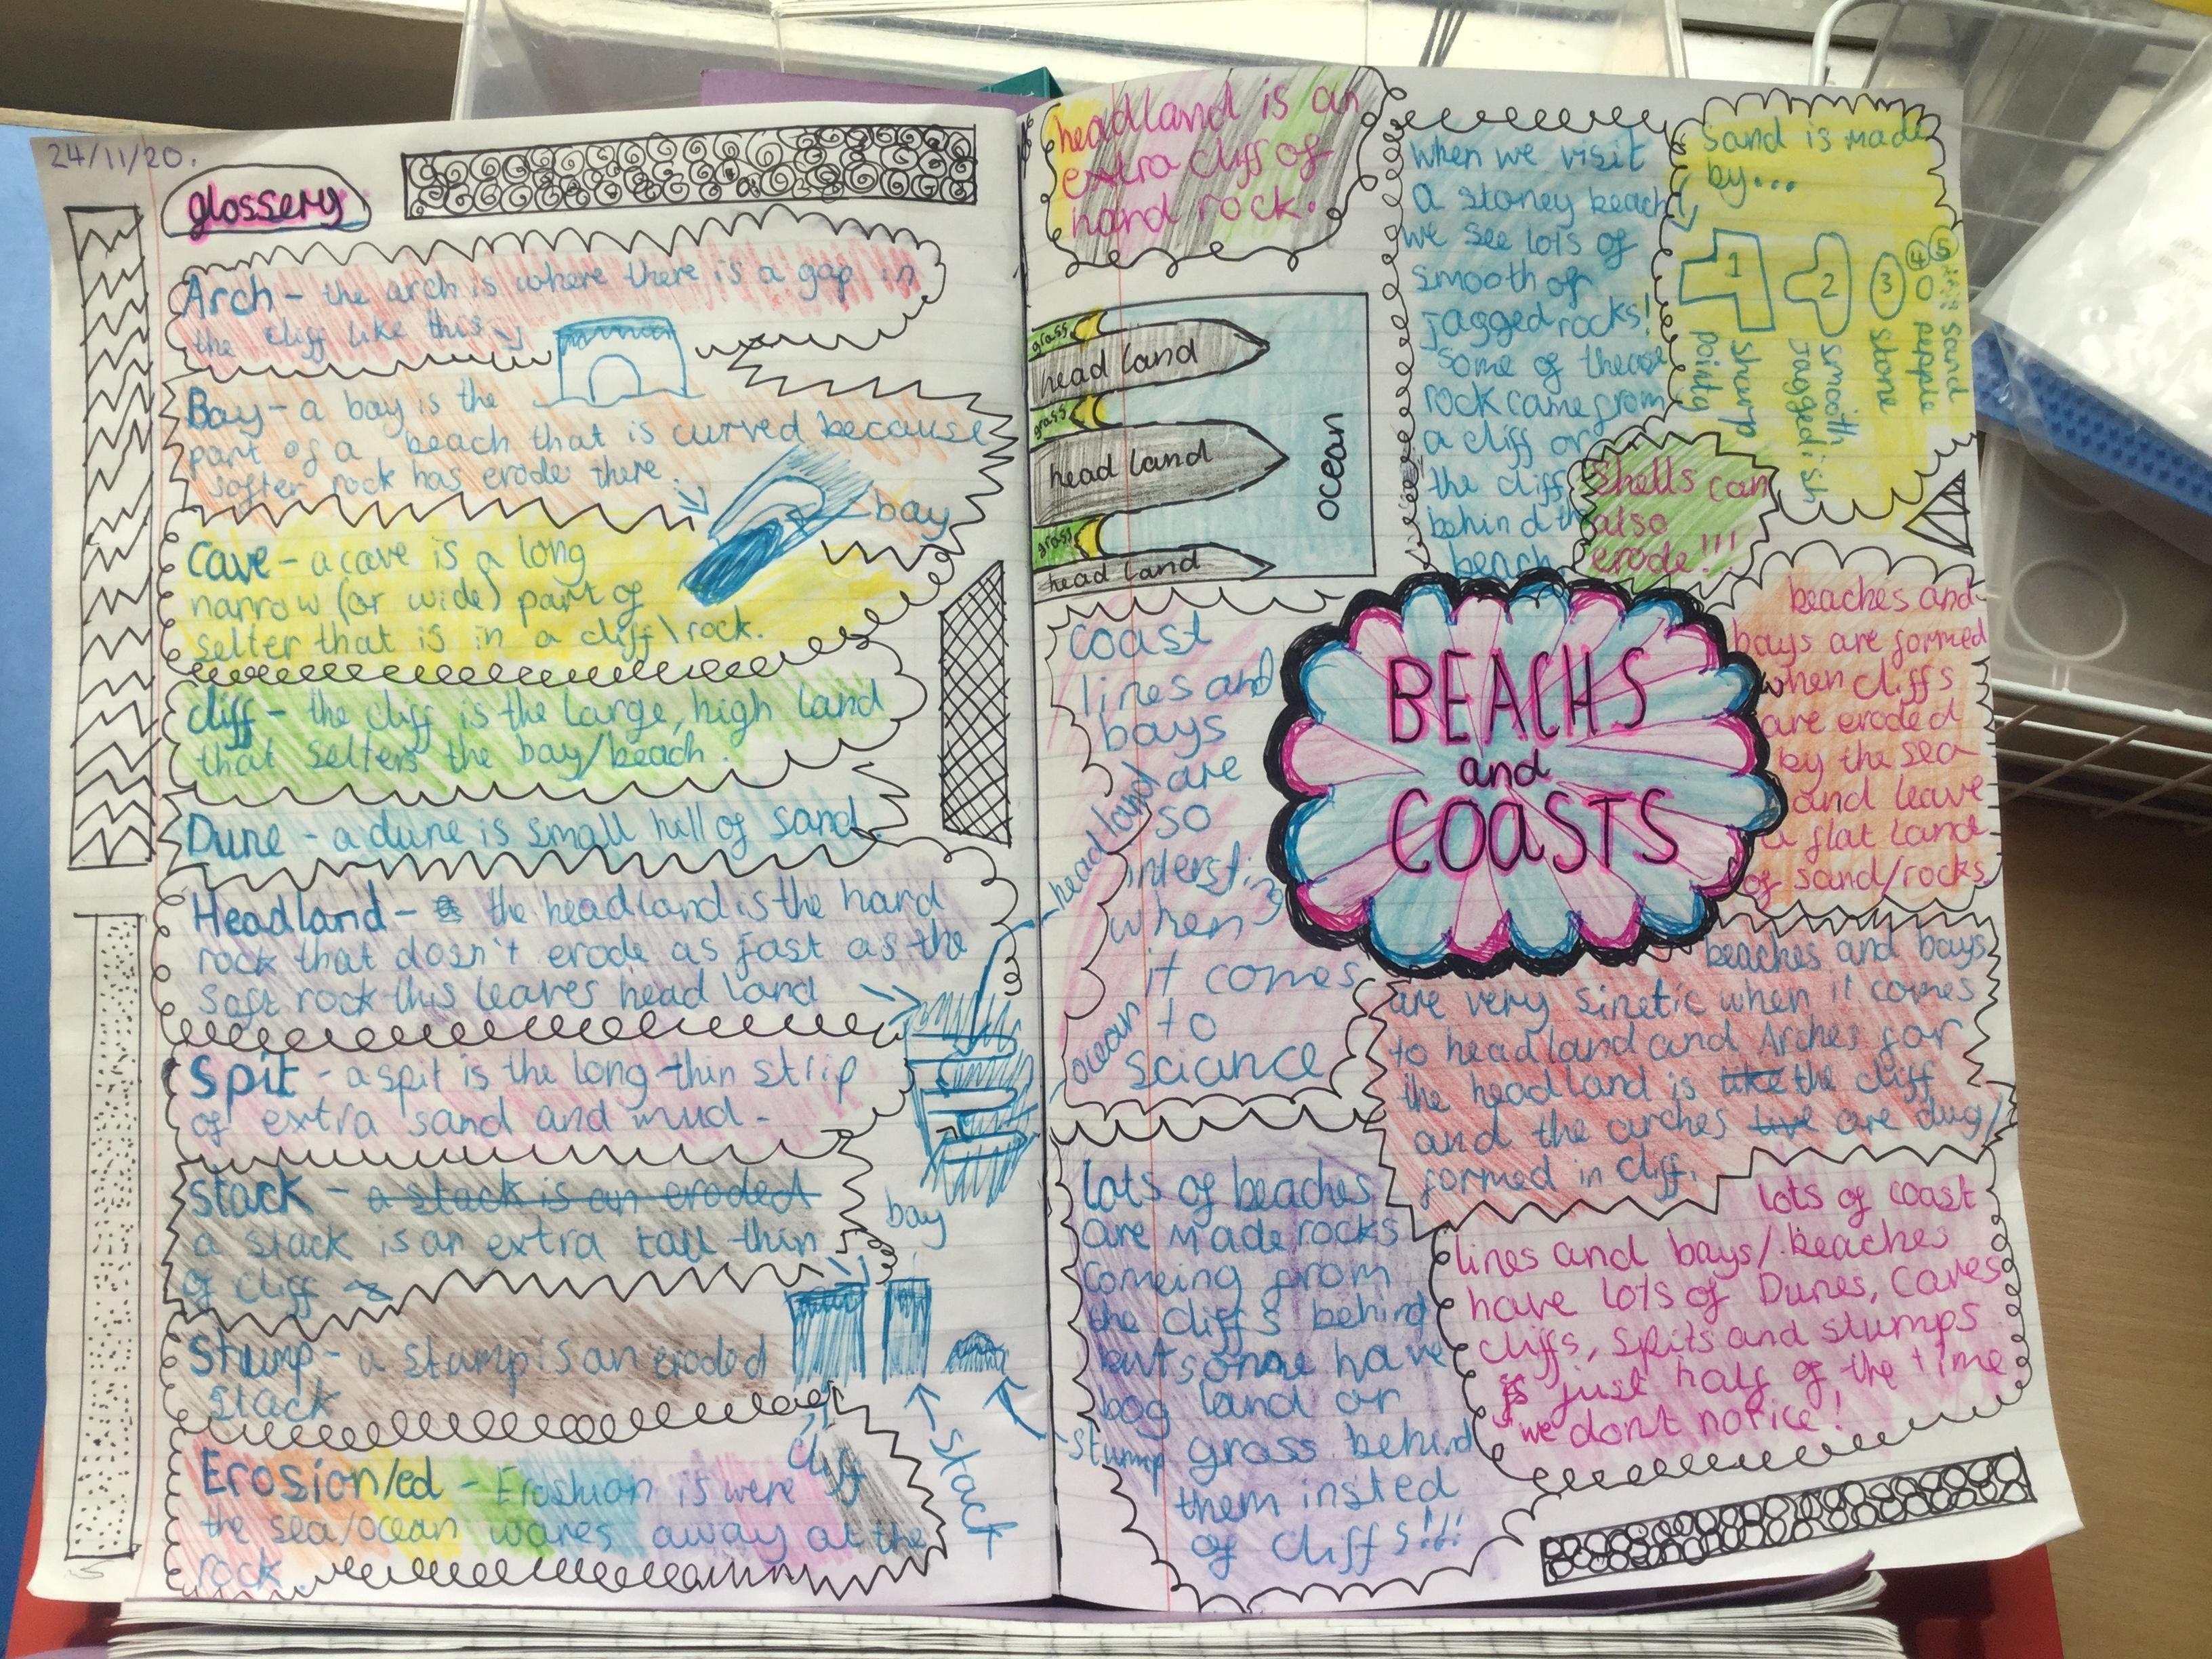 24/11/20.
glossery
Arch - the arch is where there is a gap in
the cliff like this
Bay - a bay is the
part of a beach that is curved because
softer rock has erode there.
bay
Cave - a cave is a long
narrow (or wide) part of
selter that is in a cliff\rock.
cliff - the cliff is the large, high land
that selters the bay/beach.
Dune - a dune is small hill of sand.
Headland - the headland is the hard
rock that dosn't erode as fast as the
soft rock this leaves head land
headland
ocean
bay
Spit - a spit is the long thin strip
of extra sand and mud.
Stack - a stack is an eroded
a stack is an extra tall thin
of cliff
Stump - a stump is an eroded
stack
cliff
stack
stump
Erosion/ed - Eroshion is were
the sea/ocean waves away at the
rock
headland is an
extra cliff of
hard rock.
grass
head land
grass
head land
grass
head land
ocean
when we visit
a stoney beach,
we see lots of
smooth of
jagged rocks!
some of thease
rock came from
a cliff or
the cliff
behind the
beach
Sand is made
by...
1
2
3
4
5
sharp
pointy
smooth
Jagged ish
stone
pepple
sand
Shells can
also
erode!!!
BEACHS
and
COASTS
coast
lines and
bays
are
so
intersting
when
it comes
to
sciance
beaches and
bays are formed
when cliffs
are eroded
by the sea
and leave
a flat land
of sand/rocks
beaches and bays
are very sinetic when it comes
to headland and Arches for
the headland is like the cliff
and the arches live are dug/
formed in cliff.
lots of beaches
are made rocks
comeing from
the cliffs behind
but some have
bog land or
grass behind
them insted
of cliffs!!!
lots of coast
lines and bays/beaches
have lots of Dunes, Caves
cliffs, spits and stumps
is just half of the time
we don't notice!